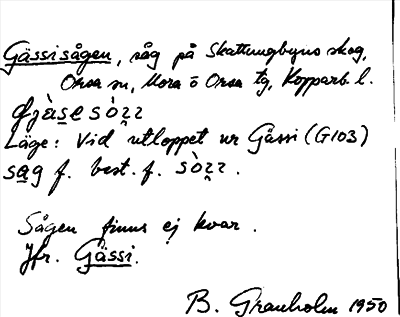 Gässisågen, såg på Skattungbyns skog,
Orsa sn, Mora o Orsa tg, Kopparb. l.
Läge: Vid utloppet ur Gässi (G103)
sag f. best. f. sòzz.
Sågen finns ej kvar.
Jfr. Gässi.
B. Granholm 1950